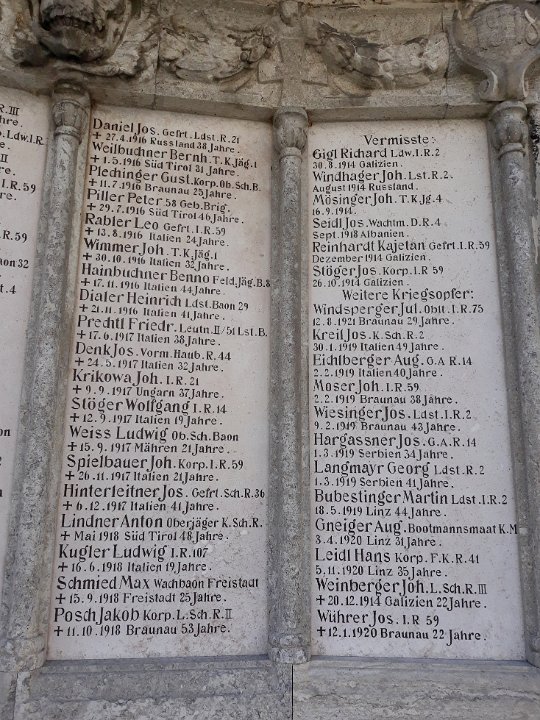 R.III
Ldw.I.R.
R.59
R.59
32
.4
on
Daniel Jos. Gefrt. Ldst.R.21
+ 27.4.1916 Russland 38 Jahre.
Weilbuchner Bernh. T.K.Jäg.1
+ 1.5.1916 Süd Tirol 31 Jahre.
Plechinger Gust. Korp. Ob. Sch.B.
+ 11.7.1916 Braunau 25 Jahre.
Piller Peter 58 Geb.Brig.
+ 29.7.1916 Süd Tirol 46 Jahre.
Rabler Leo Gefrt. I.R.59
+ 13.8.1916 Italien 24 Jahre.
Wimmer Joh. T.K.Jäg.1
+ 30.10.1916 Italien 32 Jahre.
Hainbuchner Benno Feld.Jäg.B.8
+ 17.11.1916 Italien 44 Jahre.
Dialer Heinrich Ldst.Baon 29
+ 21.11.1916 Italien 41 Jahre.
Prechtl Friedr. Leutn. II/51 Lst.B.
+ 17.6.1917 Italien 38 Jahre.
Denk Jos. Vorm. Haub. R.44
+ 24.5.1917 Italien 32 Jahre.
Krikowa Joh. I.R.21
+ 9.9.1917 Ungarn 37 Jahre.
Stöger Wolfgang I.R.14
+ 12.9.1917 Italien 19 Jahre.
Weiss Ludwig Ob.Sch.Baon
+ 15.9.1917 Mähren 21 Jahre.
Spielbauer Joh. Korp. I.R.59
+ 26.11.1917 Italien 21 Jahre.
Hinterleitner Jos. Gefrt.Sch.R.36
+ 6.12.1917 Italien 41 Jahre.
Lindner Anton Oberjäger K.Sch.R.
+ Mai 1918 Süd Tirol 48 Jahre.
Kugler Ludwig I.R.107
+ 16.6.1918 Italien 19 Jahre.
Schmied Max Wachbaon Freistadt
+ 15.9.1918 Freistadt 25 Jahre.
Posch Jakob Korp. L.Sch.R.II
+ 11.10.1918 Braunau 53 Jahre.
Vermisste:
Gigl Richard Ldw.I.R.2
30.8.1914 Galizien.
Windhager Joh. Lst.R.2.
August 1914 Russland.
Mösinger Joh. T.K.Jg.4
16.9.1914.
Seidl Jos. Wachtm. D.R.4
Sept. 1918 Albanien.
Reinhardt Kajetan Gefrt.I.R.59
Dezember 1914 Galizien.
Stöger Jos. Korp. I.R 59
26.10.1914 Galizien.
Weitere Kriegsopfer:
Windsperger Jul. Oblt. I.R.75
+ 12.8.1921 Braunau 29 Jahre.
Kreil Jos. K.Sch.R.2
+ 30.1.1919 Italien 49 Jahre.
Eichlberger Aug. G.A R.14
+ 2.2.1919 Italien 40 Jahre.
Moser Joh. I.R.59
+ 2.2.1919 Braunau 38 Jahre.
Wiesinger Jos. Ldst.I.R.2.
+ 9.2.1919 Braunau 43 Jahre.
Hargassner Jos. G.A.R.14
+ 1.3.1919 Serbien 34 Jahre.
Langmayr Georg Ldst.R.2
+ 1.3.1919 Serbien 41 Jahre.
Bubestinger Martin Ldst.I.R.2
+ 18.5.1919 Linz 44 Jahre.
Gneiger Aug. Bootmannsmaat K.M
+ 3.4.1920 Linz 31 Jahre.
Leidl Hans Korp. F.K.R.41
+ 5.11.1920 Linz 35 Jahre.
Weinberger Joh. L.Sch.R.III
+ 20.12.1914 Galizien 22 Jahre.
Wührer Jos. I.R 59
+ 12.1.1920 Braunau 22 Jahre.